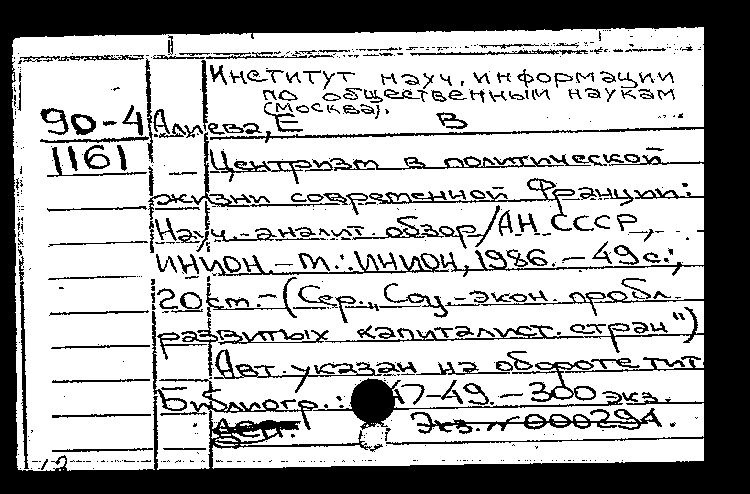 Институт науч. информации
по общественным наукам
(Москва).
90-4 Алиева, Е В
1161 Центризм в политической
жизни современной Франции:
Науч.-аналит. обзор/АН СССР,
ИНИОН.-М.: ИНИОН, 1986.-49 с.;
20 см.-(Сер. "Соц.-экон. пробл.
развитых капиталист. стран")
Авт. указан на обороте тит.
Библиогр.: 47-49.-300 экз.
Экз. № 000294.